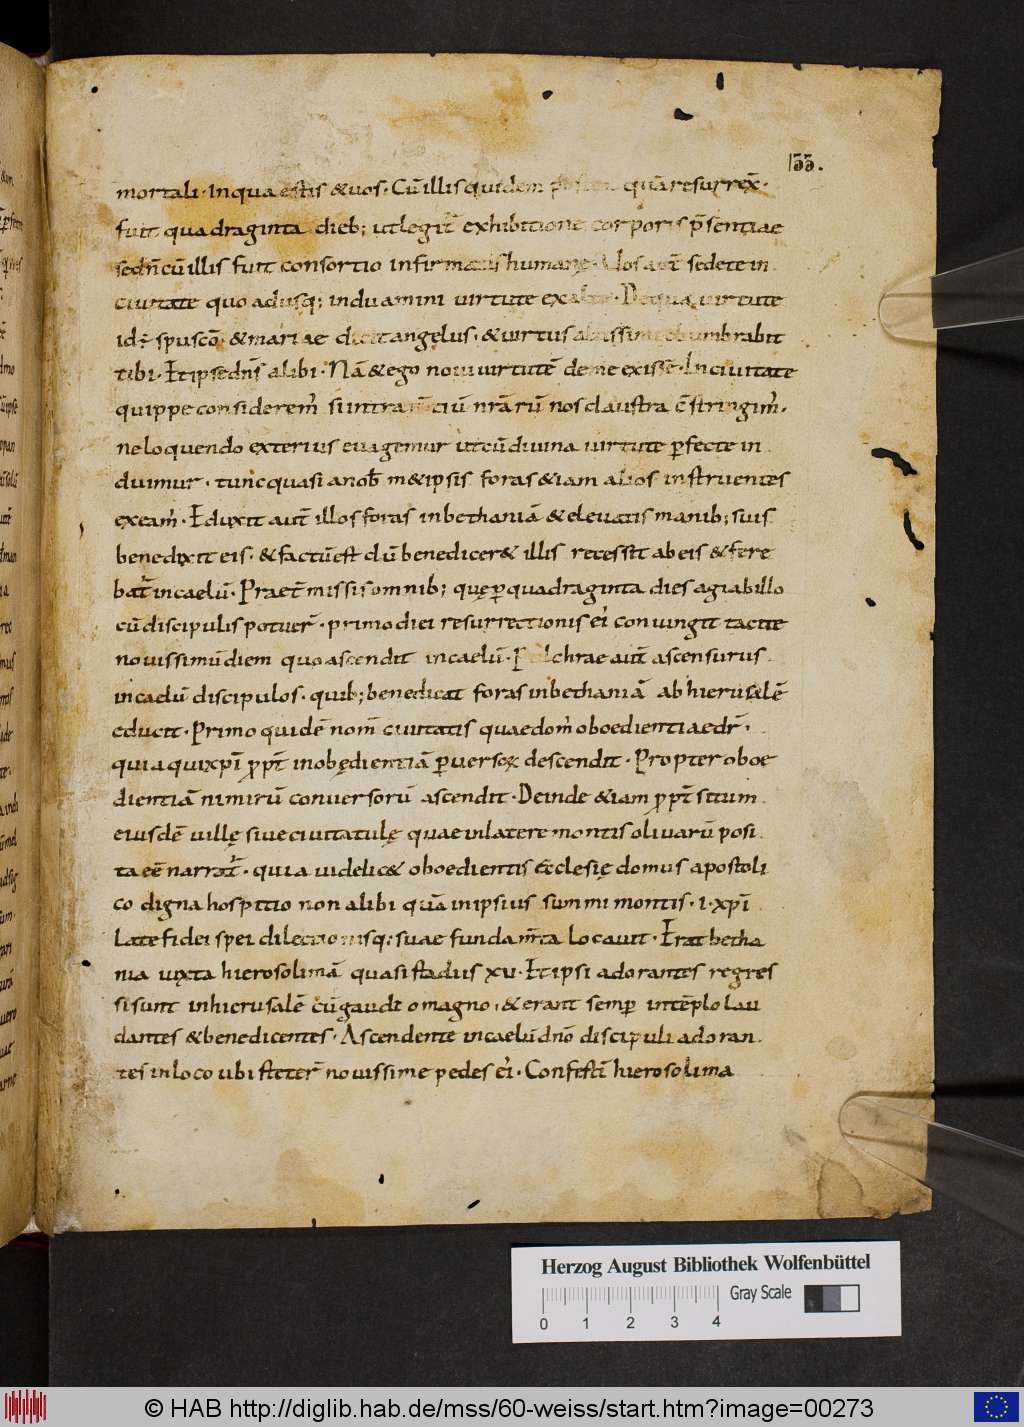 133.
mortali · In qua estis & uos · Cū illis quidem quā resurrex̄ ·
fuit quadraginta dieb; ut legit̄ exhibitione corporis p̄sentiae
sed n̄ cū illis fuit consortio infirmitatis humanę · Uos aut̄ sedete in
ciuitate quo adusq; induamini uirtute ex alto · De qua uirtute
id ÷ sp̄u sc̄o · & mariae dicit angelus · & uirtus altissimi obumbrabit
tibi · Et ipse dn̄s alibi · Nā & ego noui uirtutē de me exisse · In ciuitate
quippe considerem̄ si intra m̄ciū nr̄arū nos claustra c̄stringim̄ ·
ne loquendo exterius euagemur ut cū diuina uirtute ꝑfecte in
duimur · tunc quasi a nob̄ m&ipsis foras &iam alios instruentes
exeam̄ · Eduxit aut̄ illos foras in bethaniā & eleuatis manib; suis
benedixit eis · & factū est dū benedicer& illis recessit ab eis & fere
bat̄ in caelū · Praet̄missis omnib; quę ꝑ quadraginta dies agi ab illo
cū discipulis potuer̄ · primo diei resurrectionis ei᾽ conuingit tacite
nouissimū diem quo ascendit in caelū · Pulchrae aut̄ ascensurus
in caelū discipulos · quib; benedicat foras in bethaniā ab hierusalē
educit · Primo quidē nom̄ ciuitatis quae dom᾽ oboedientiae dr̄ ·
quia qui xp̄i ꝓpt̄ inobędientiā ꝑuersoꝝ descendit · Propter oboe
dientiā nimirū conuersorū ascendit · Deinde &iam ꝓpt̄ situm
eiusdē uillę siue ciuitatulę quae in latere montis oliuarū posi
ta eē narrat̄ · quia uidelic& oboedientis ecclesię domus apostoli
co digna hospitio non alibi quā in ipsius summi montis · i · xp̄i
Late fidei spei dilectionisq; suae fundam̄ta locauit · Erat betha
nia iuxta hierosolimā quasi stadiis xu · Et ipsi adorantes regres
si sunt in hierusalē cū gaudio magno · & erant semꝑ in tēplo lau
dantes & benedicentes · Ascendente in caelū dn̄o discipuli adoran
tes in loco ubi steter̄ nouissime pedes ei᾽ · Confestī hierosolima
Herzog August Bibliothek Wolfenbüttel
Gray Scale
0 1 2 3 4
© HAB http://diglib.hab.de/mss/60-weiss/start.htm?image=00273